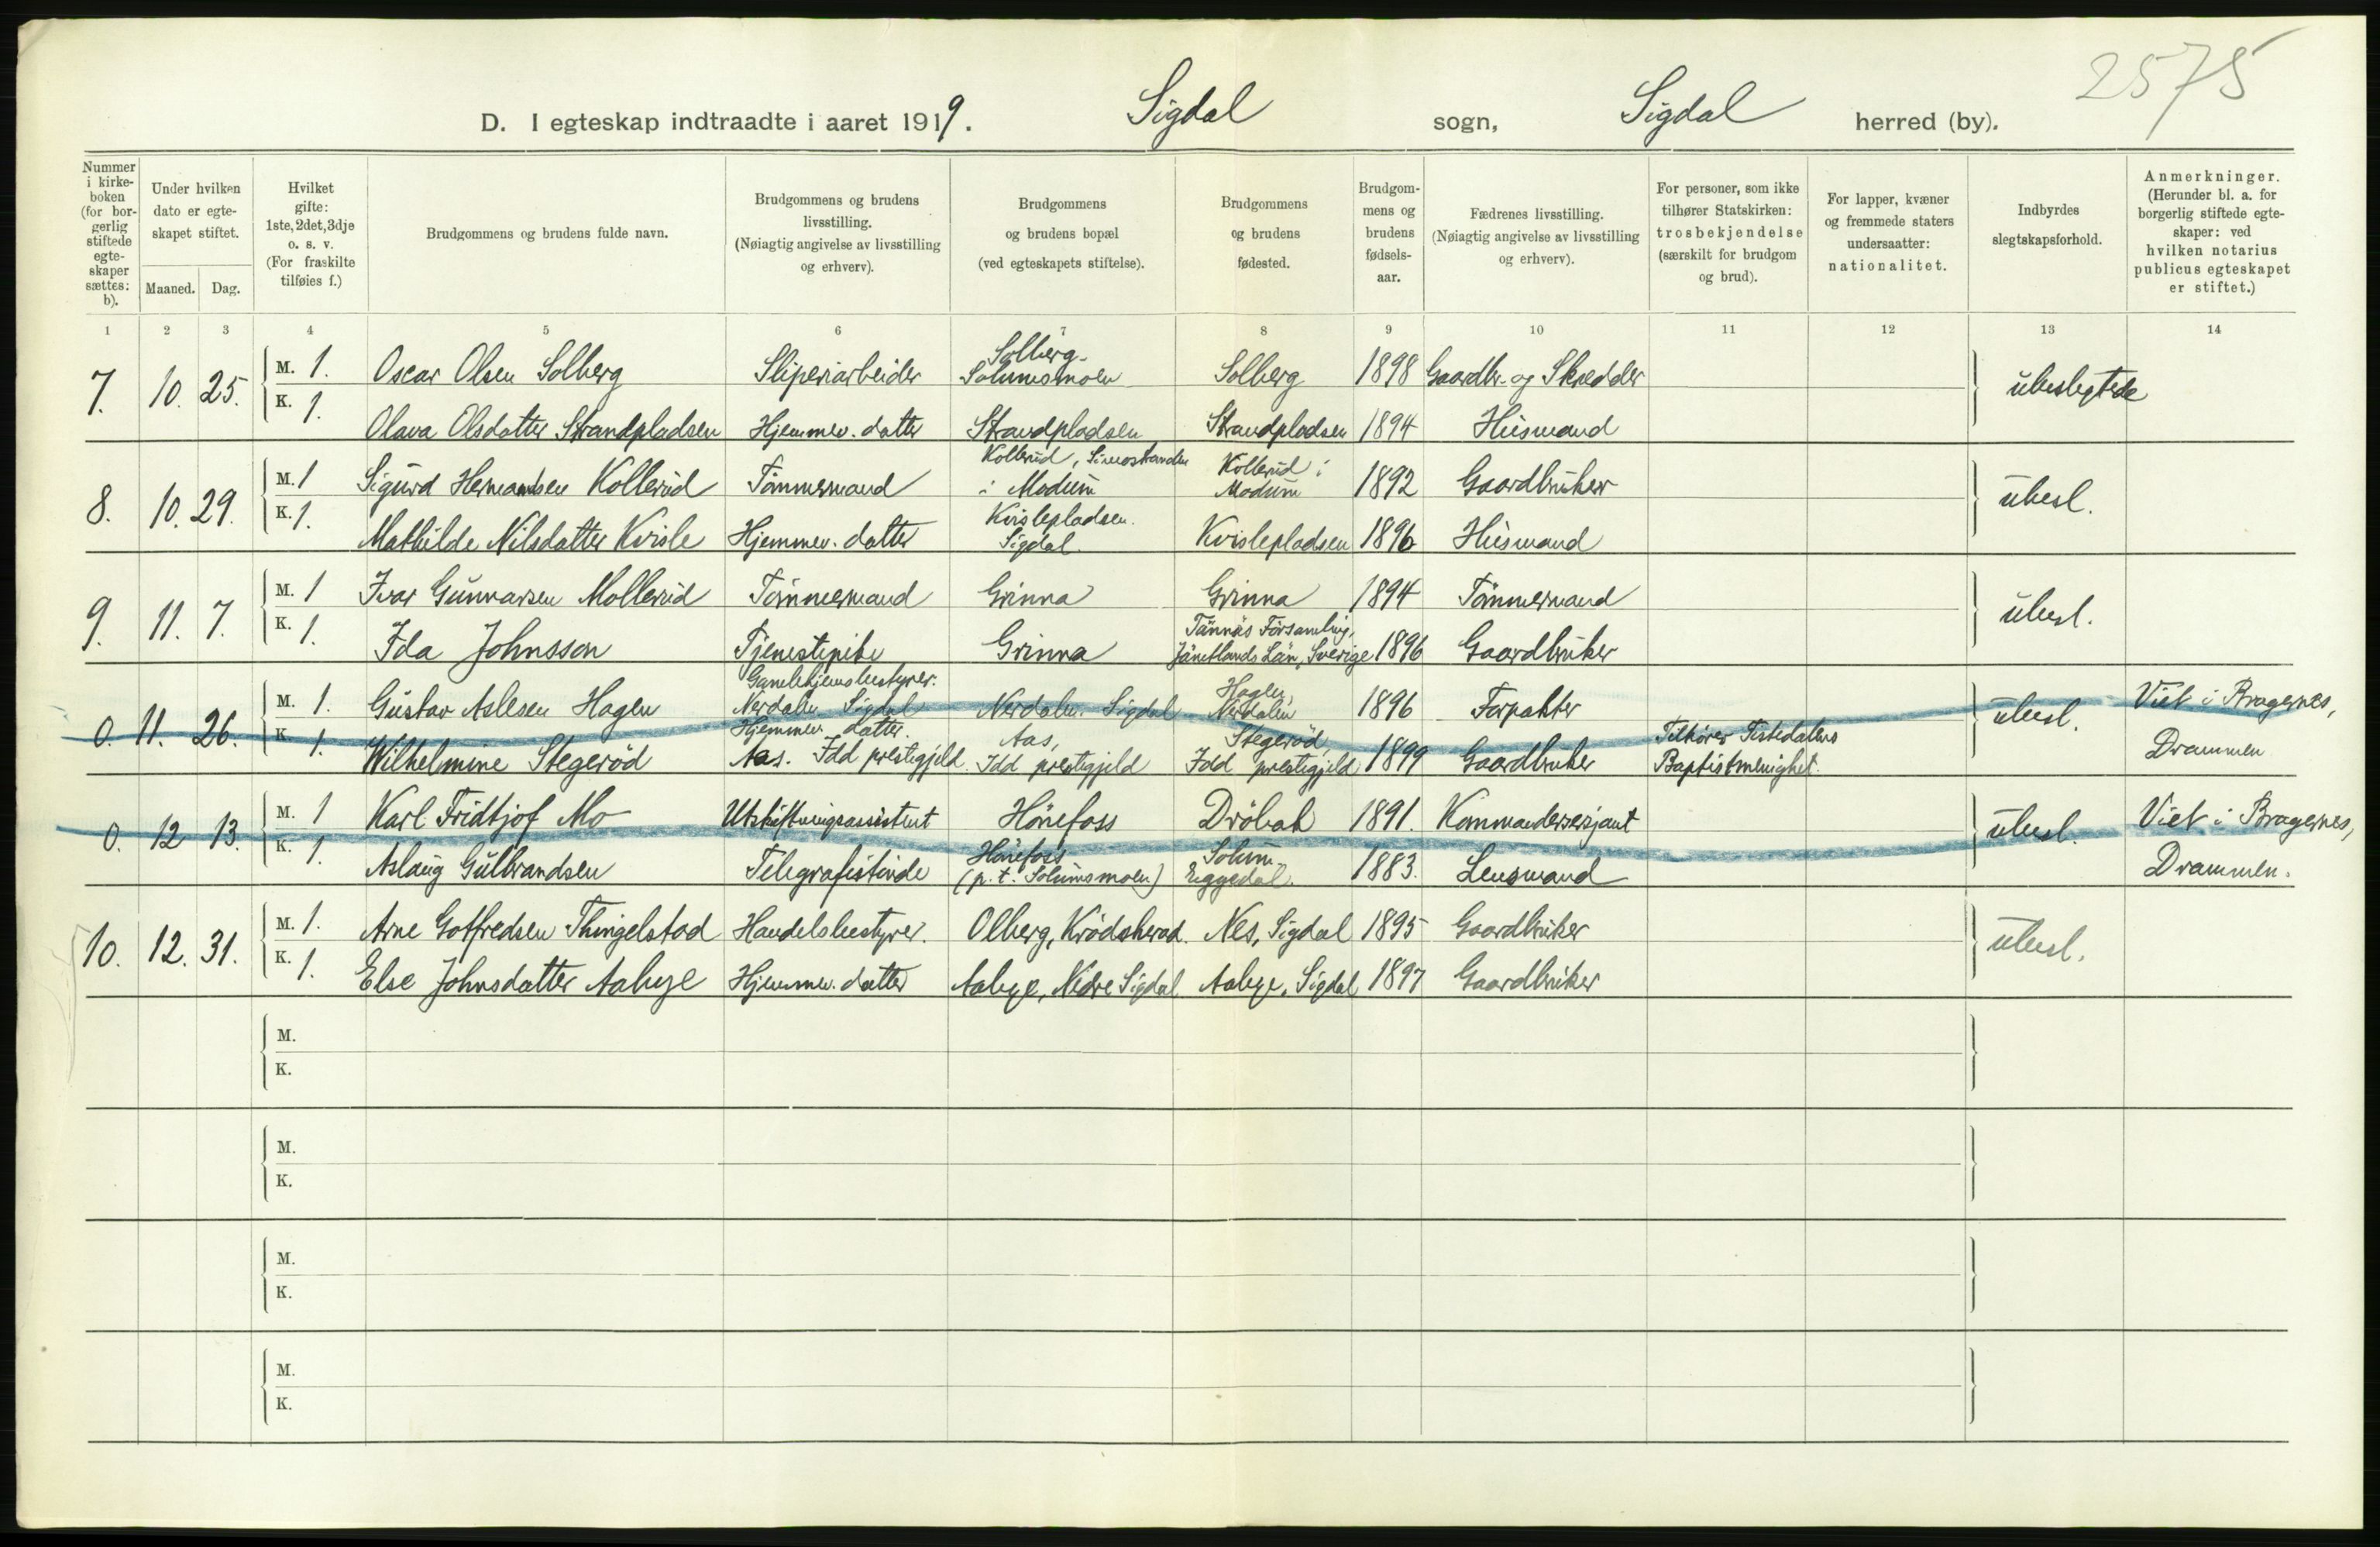 2575
D. I egteskap indtraadte i aaret 1919. Sigdal sogn, Sigdal herred (by).
Nummer i kirkeboken (for borgerlig stiftede egteskaper sættes: b).
Under hvilken dato er egteskapet stiftet.
Maaned. Dag.
Hvilket gifte: 1ste, 2det, 3dje o. s. v. (For fraskilte tilføies f.)
Brudgommens og brudens fulde navn.
Brudgommens og brudens livsstilling. (Nøiagtig angivelse av livsstilling og erhverv).
Brudgommens og brudens bopæl (ved egteskapets stiftelse).
Brudgommens og brudens fødested.
Brudgommens og brudens fødselsaar.
Fædrenes livsstilling. (Nøiagtig angivelse av livsstilling og erhverv).
For personer, som ikke tilhører Statskirken: trosbekjendelse (særskilt for brudgom og brud).
For lapper, kvæner og fremmede staters undersaatter: nationalitet.
Indbyrdes slegtskapsforhold.
Anmerkninger. (Herunder bl. a. for borgerlig stiftede egteskaper: ved hvilken notarius publicus egteskapet er stiftet.)
1 2 3 4 5 6 7 8 9 10 11 12 13 14
7. 10. 25. M. 1. Oscar Olsen Solberg Sliperiarbeider Solberg- Solumsmoen Solberg 1898 Gaardbr. og Skrædder ubeslegtede
K. 1. Olava Olsdatter Strandpladsen Hjemmev. datter Strandpladsen Strandpladsen 1894 Husmand
8. 10. 29. M. 1 Sigurd Hermandsen Kollerud Tømmermand Kollerud, Simostranden i Modum Kollerud i Modum 1892 Gaardbruker ubesl.
K. 1. Mathilde Nilsdatter Kvisle Hjemmev. datter Kvislepladsen. Sigdal. Kvislepladsen 1896 Husmand
9. 11. 7. M. 1 Ivar Gunnarsen Mollerud Tømmermand Grinna Grinna 1894 Tømmermand ubesl.
K. 1. Ida Johnsson Tjenestepike Grinna Tännäs Församling, Jämtlands Län, Sverige 1896 Gaardbruker
0. 11. 26. M. 1. Gustav Aslesen Hagen Gamlehjemsbestyrer. Nerdalen Sigdal Nerdalen. Sigdal Hagen, Nerdalen 1896 Forpakter ubesl. Viet i Bragernes,
K. 1. Wilhelmine Stegerød Hjemmev. datter. Aas. Idd prestegjeld Aas, Idd prestegjeld Stegerød, Idd prestegjeld 1899 Gaardbruker Tilhører Tistedalens Baptistmenighet. Drammen
0. 12 13. M. 1 Karl Fridtjof Mo Utskiftningsassistent Hønefoss Drøbak 1891. Kommandersersjant ubesl. Viet i Bragernes,
K. 1. Aslaug Gulbrandsen Telegrafistinde Hønefoss (p. t. Solumsmoen) Solum, Eggedal. 1883. Lensmand Drammen.
10. 12. 31. M. 1. Arne Gotfredsen Thingelstad Handelsbestyrer. Olberg, Krødsherad. Nes, Sigdal 1895 Gaardbruker ubesl.
K. 1. Else Johnsdatter Aabye Hjemmev. datter Aabye, Nedre Sigdal Aabye, Sigdal 1897 Gaardbruker
M.
K.
M.
K.
M.
K.
M.
K.